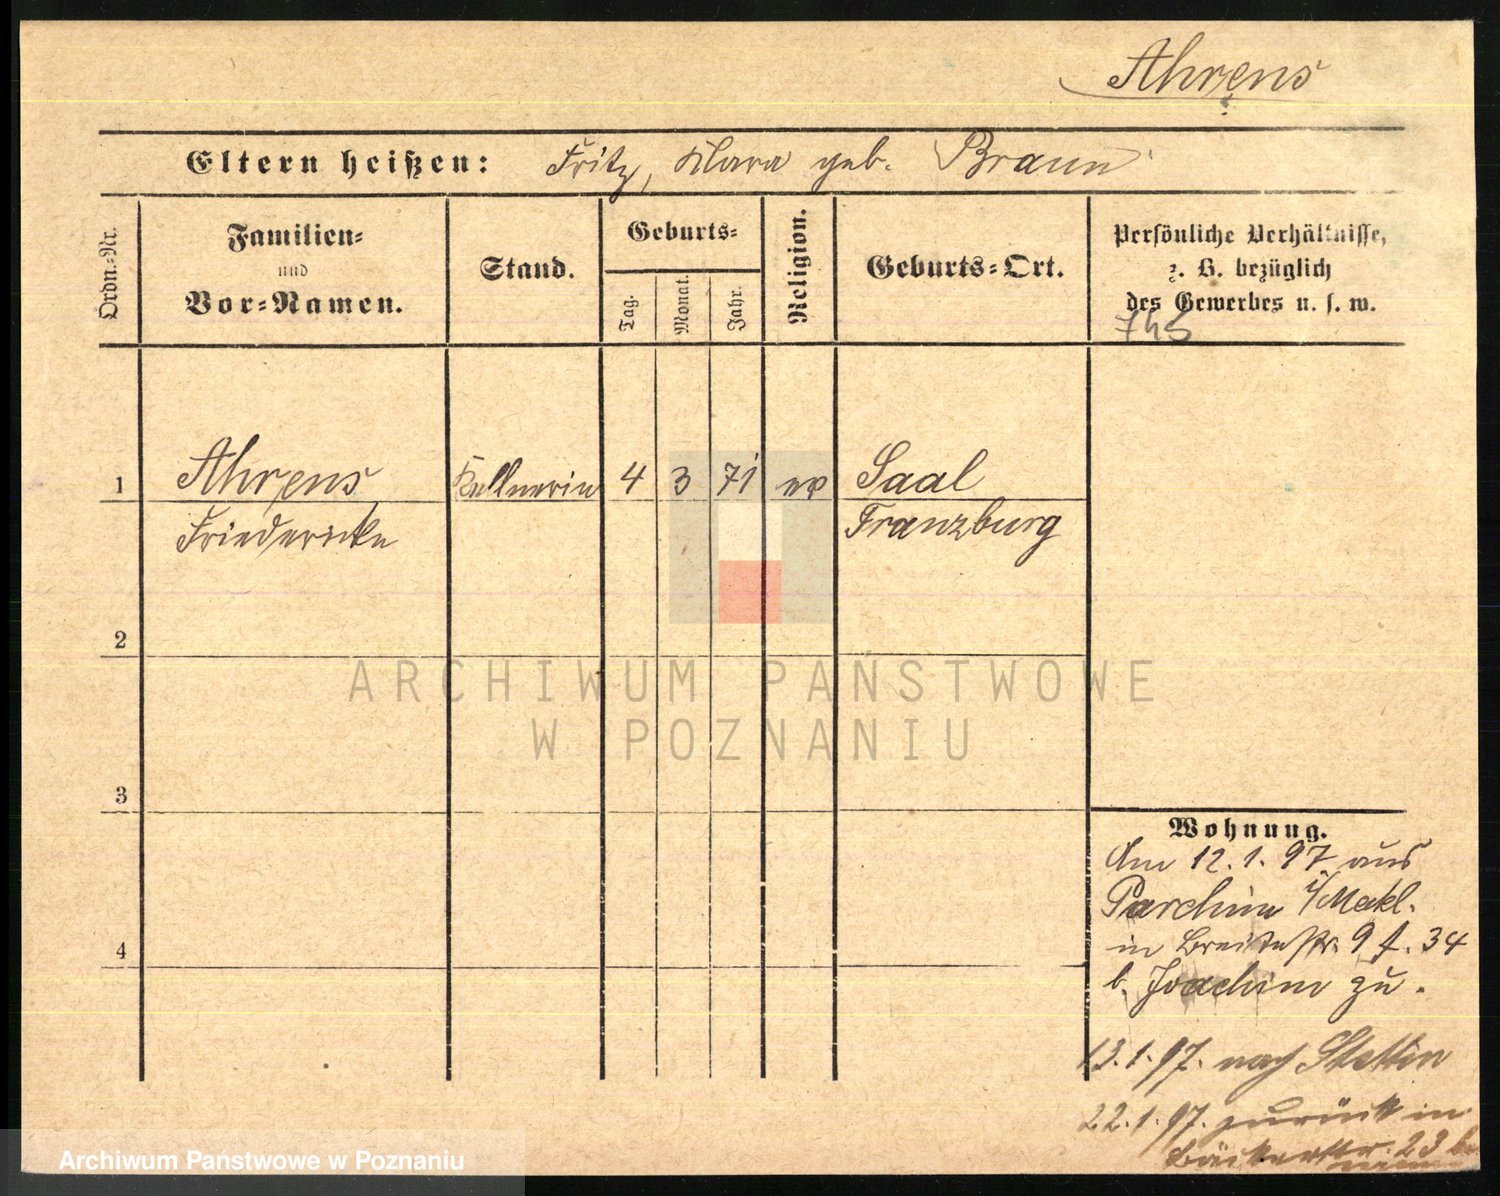 Ahrens
Eltern heißen: Fritz, Klara geb. Braun
Ordn.-Nr.
Familien-
und
Vor-Namen.
Stand.
Geburts-
Tag.
Monat.
Jahr.
Religion.
Geburts-Ort.
Persönliche Verhältnisse,
z. B. bezüglich
des Gewerbes u. s. w.
745
1 Ahrens Kellnerin 4 3 71 ev Saal
Friedericke Franzburg
2
3
4
Wohnung.
Am 12.1.97 aus
Parchim i/Mekl.
in Breitestr. 9 f. 34
b. Joachim zu.
13.1.97. nach Stettin
22.1.97. zurück in
Bäckerstr. 23 b.
ARCHIWUM PAŃSTWOWE
W POZNANIU
Archiwum Państwowe w Poznaniu